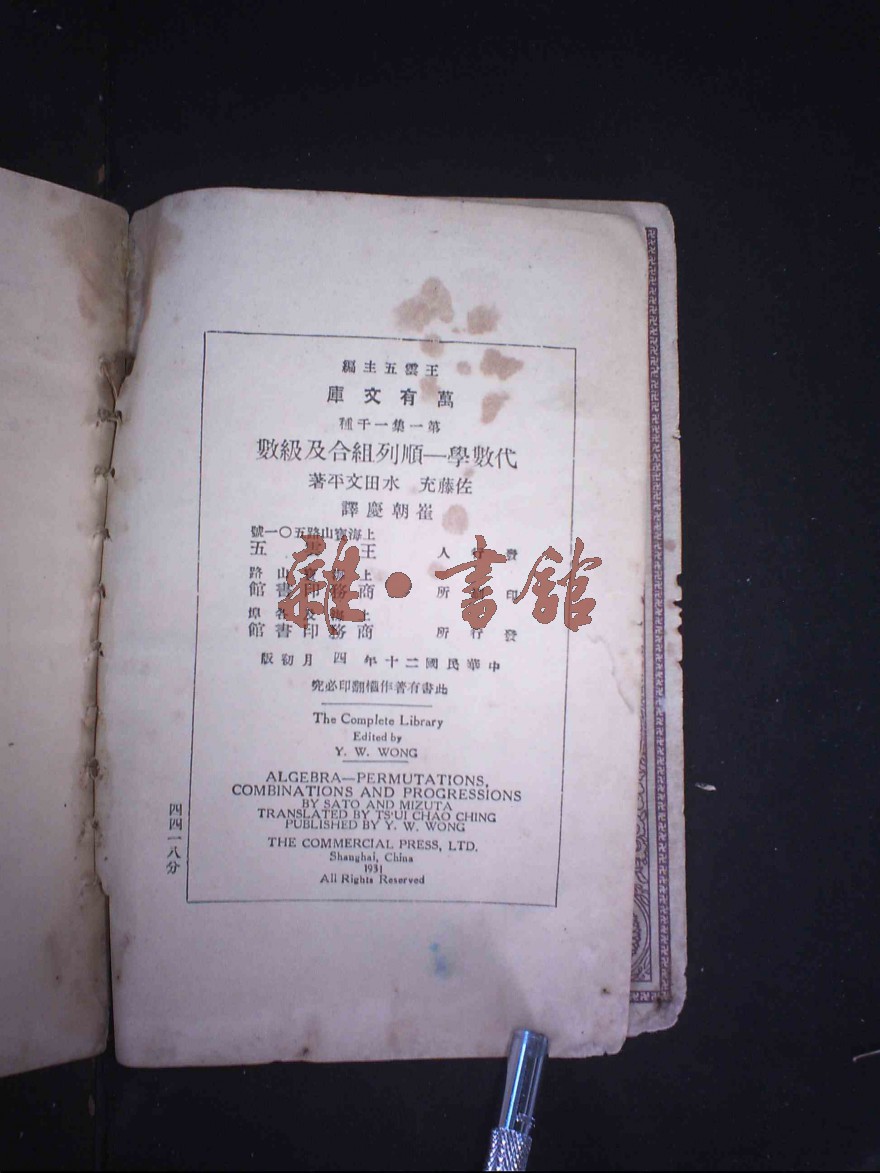 王雲五主編
萬有文庫
第一集一千種
代數學—順列組合及級數
佐藤充 水田文平著
崔朝慶譯
上海寶山路五〇一號
發行人 王雲五
上海寶山路
印刷所 商務印書館
上海及各埠
發行所 商務印書館
中華民國二十年四月初版
此書有著作權翻印必究
The Complete Library
Edited by
Y. W. WONG
ALGEBRA—PERMUTATIONS,
COMBINATIONS AND PROGRESSIONS
BY SATO AND MIZUTA
TRANSLATED BY TS'UI CHAO CHING
PUBLISHED BY Y. W. WONG
THE COMMERCIAL PRESS, LTD.
Shanghai, China
1931
All Rights Reserved
四四一八分
雜·書館